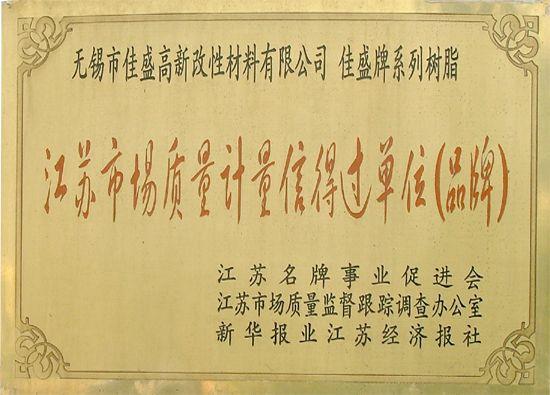 无锡市佳盛高新改性材料有限公司 佳盛牌系列树脂
江苏市场质量计量信得过单位(品牌)
江苏名牌事业促进会
江苏市场质量监督跟踪调查办公室
新华报业江苏经济报社